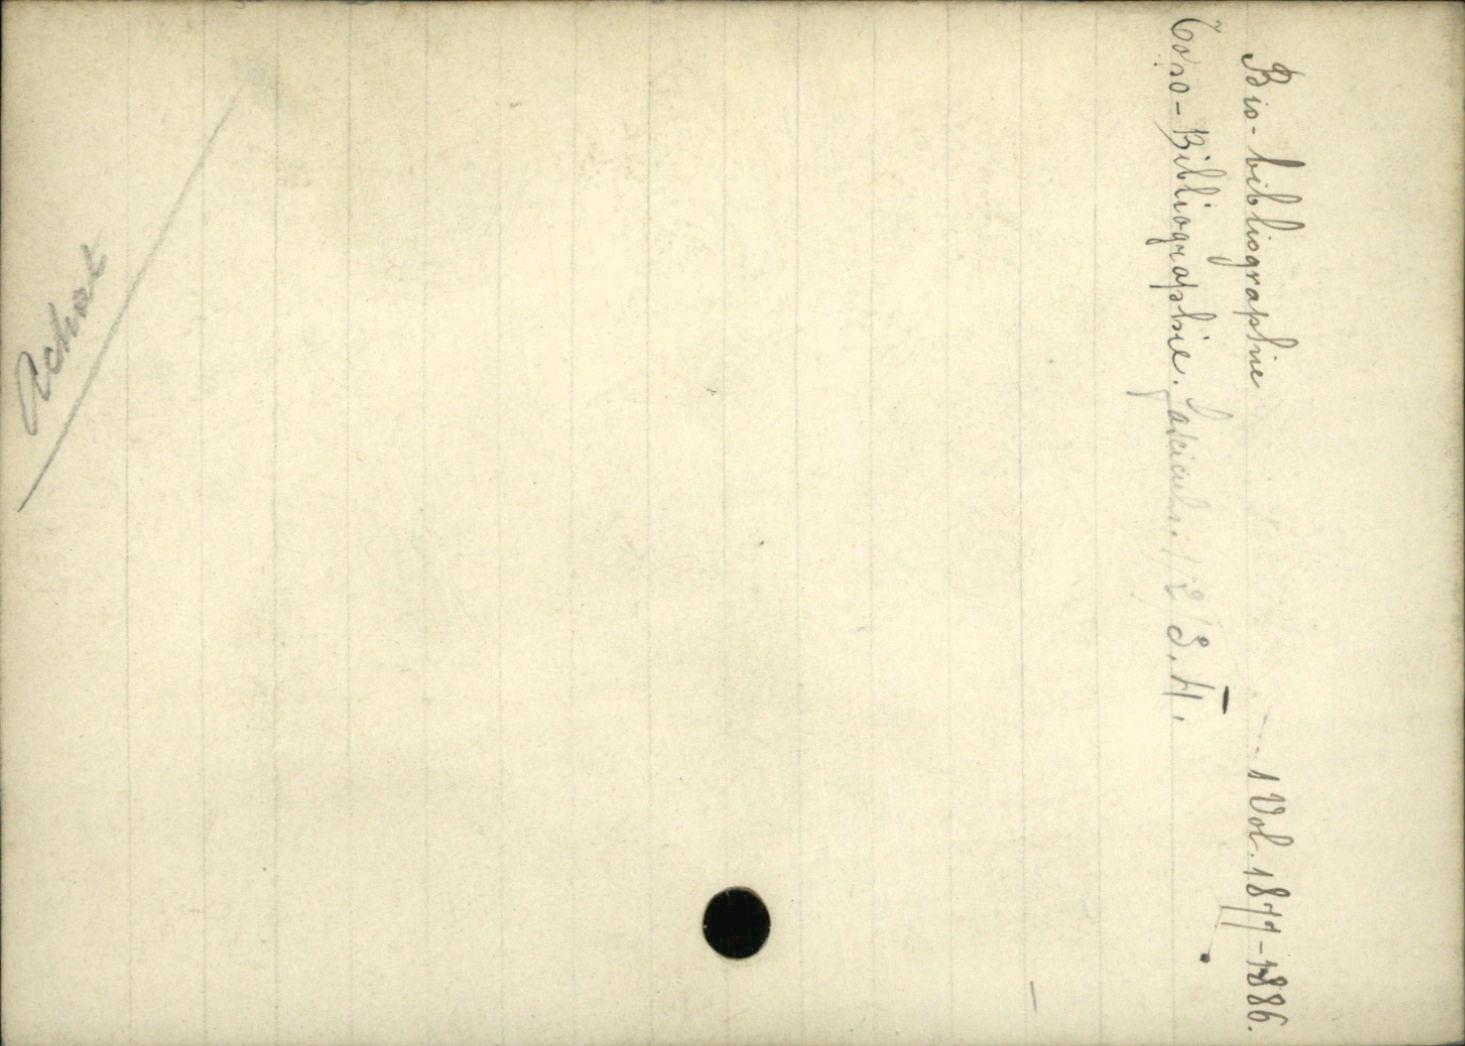 Bio-bibliographie 1 Vol. 1877-1886.
Topo-Bibliographie. fascicules. 1/2/3. 4.
Achat